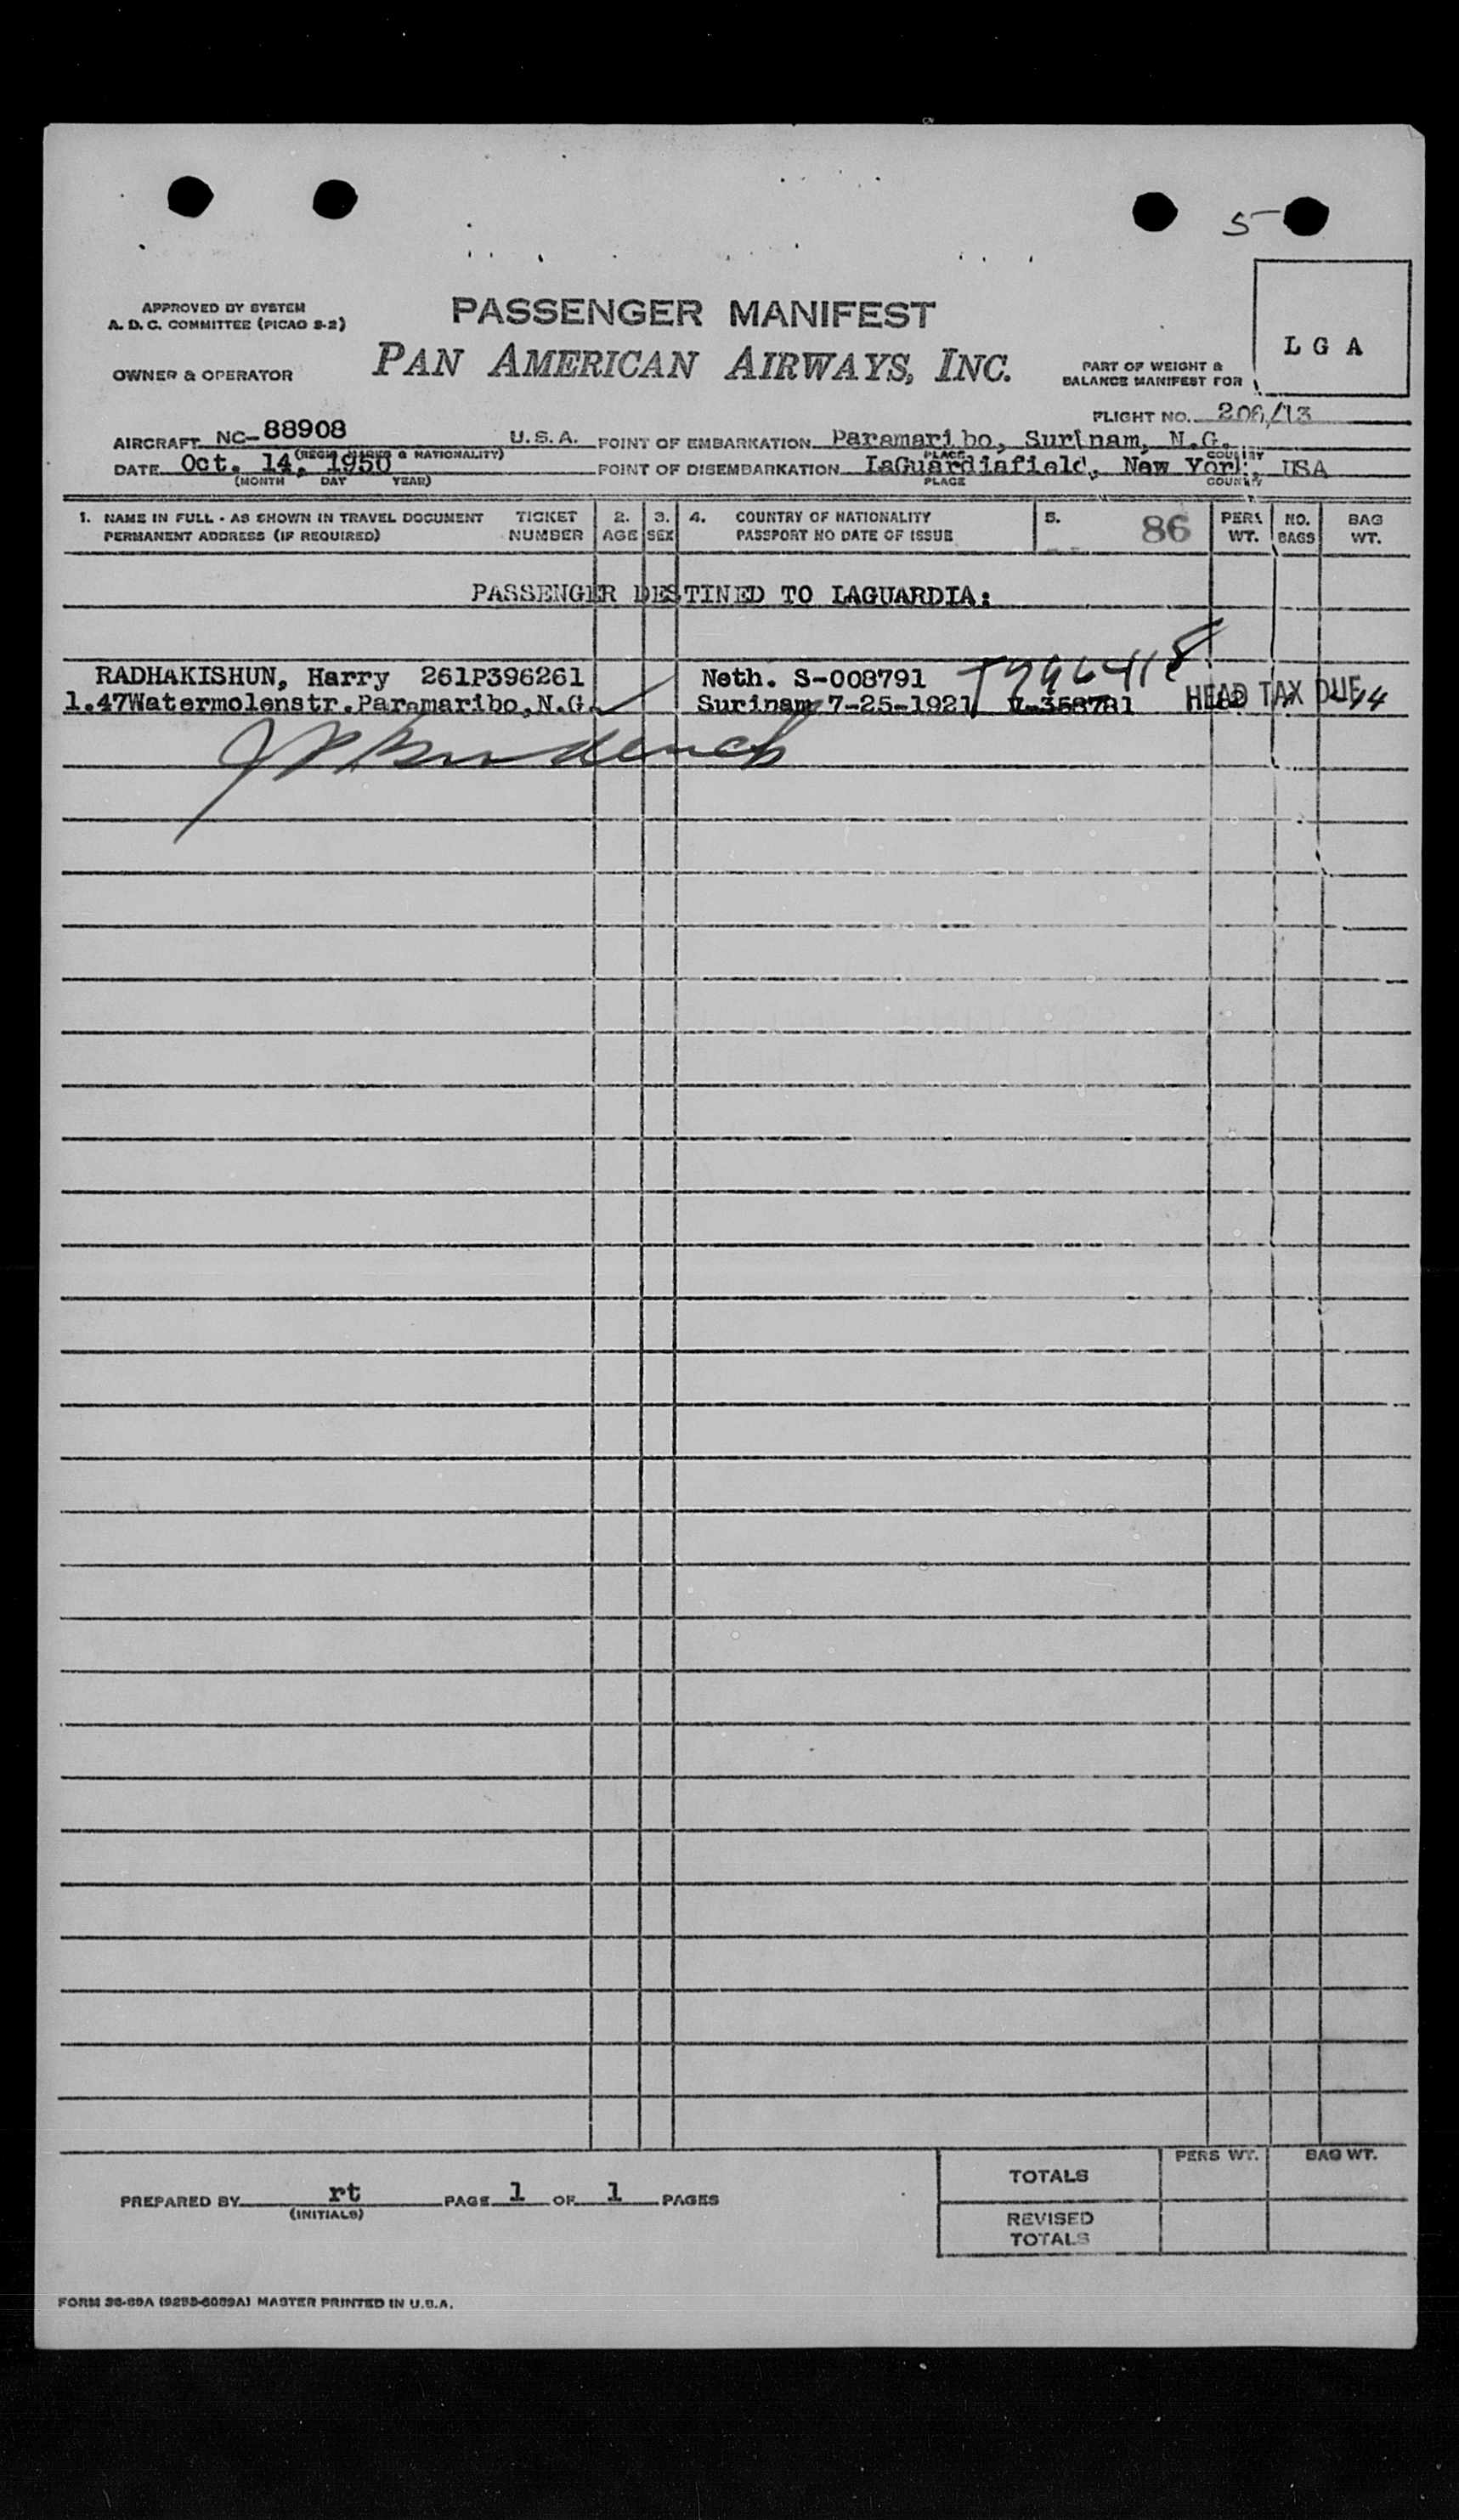 5
APPROVED BY SYSTEM
A. D. C. COMMITTEE (PICAO S-2)
PASSENGER MANIFEST
PAN AMERICAN AIRWAYS, INC.
OWNER & OPERATOR
PART OF WEIGHT &
BALANCE MANIFEST FOR
L G A
FLIGHT NO. 206/13
AIRCRAFT NC-88908 U. S. A. POINT OF EMBARKATION Paramaribo, Surinam, N.G.
(REGIS. MARKS & NATIONALITY) PLACE COUNTRY
DATE Oct. 14, 1950 POINT OF DISEMBARKATION LaGuardiafield, New York, USA
(MONTH DAY YEAR) PLACE COUNTRY
1. NAME IN FULL - AS SHOWN IN TRAVEL DOCUMENT TICKET 2. 3. 4. COUNTRY OF NATIONALITY 5. 86 PERS. NO. BAG
PERMANENT ADDRESS (IF REQUIRED) NUMBER AGE SEX PASSPORT NO DATE OF ISSUE WT. BAGS WT.
PASSENGER DESTINED TO LAGUARDIA:
RADHAKISHUN, Harry 261P396261 Neth. S-008791
1.47Watermolenstr.Paramaribo,N.G. Surinam 7-25-1921 HEAD TAX DUE
PERS WT. BAG WT.
TOTALS
PREPARED BY rt PAGE 1 OF 1 PAGES
(INITIALS)
REVISED
TOTALS
MASTER PRINTED IN U.S.A.